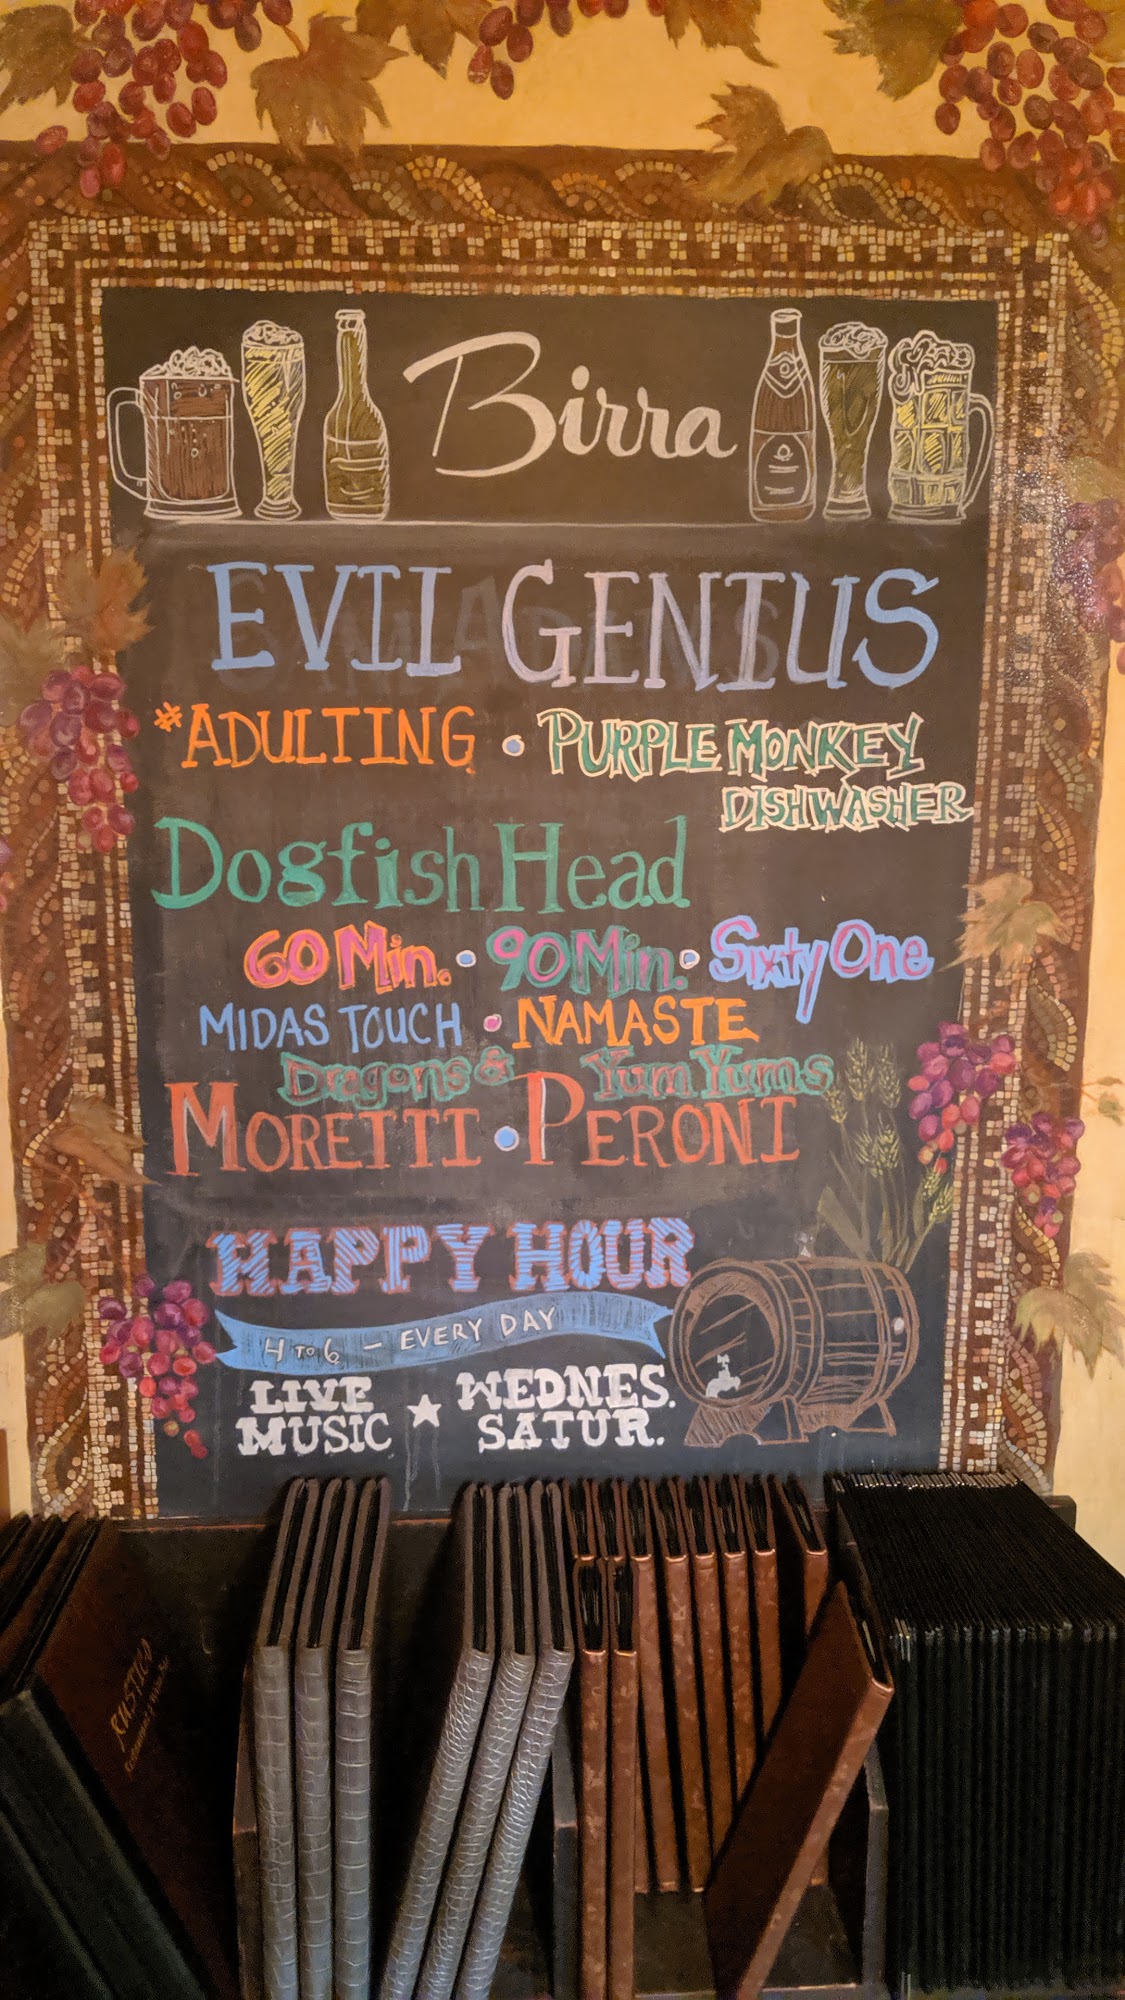 Birra
EVIL GENIUS
#ADULTING • PURPLE MONKEY
DISHWASHER
Dogfish Head
60 Min. • 90 Min. • Sixty One
MIDAS TOUCH • NAMASTE
Dragons & Yum Yums
MORETTI • PERONI
HAPPY HOUR
4 TO 6 - EVERY DAY
LIVE MUSIC ★ WEDNES. SATUR.